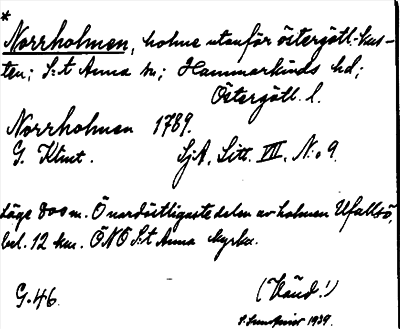 *
Norrholmen, holme utanför östergötl.-kus-
ten; S:t Anna sn; Hammarkinds hd;
Östergötl. l.
Norrholmen 1789.
G. Klint. SjA, Litt. VII, N:o 9.
Läge 800 m. Ö nordöstligaste delen av holmen Ufallsö,
bel. 12 km. ÖNÖ S:t Anna kyrka.
G. 46. (Vänd!)
1939.